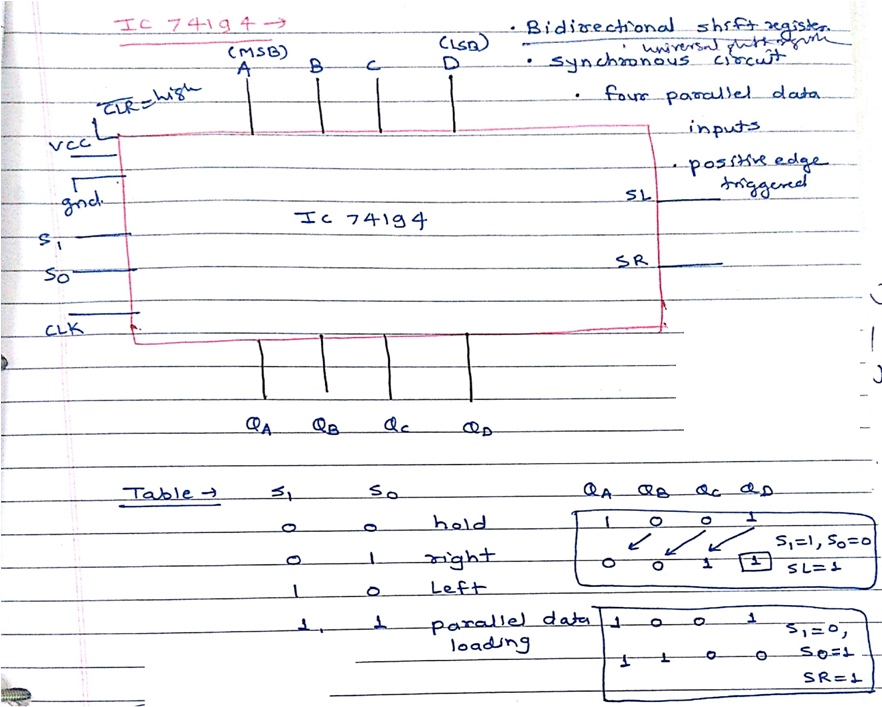 IC 74194 →
• Bidirectional shift register.
universal shift register
• synchronous circuit
• four parallel data
inputs
• positive edge
triggered
(MSB) (LSB)
A B C D
CLR = high
VCC
gnd.
S1
S0
CLK
IC 74194
SL
SR
QA QB QC QD
Table → S1 S0
0 0 hold
0 1 right
1 0 Left
1. 1 parallel data
loading
QA QB QC QD
1 0 0 1
0 0 1 1
S1=1, S0=0
SL=1
1 0 0 1
1 1 0 0
S1=0,
S0=1
SR=1